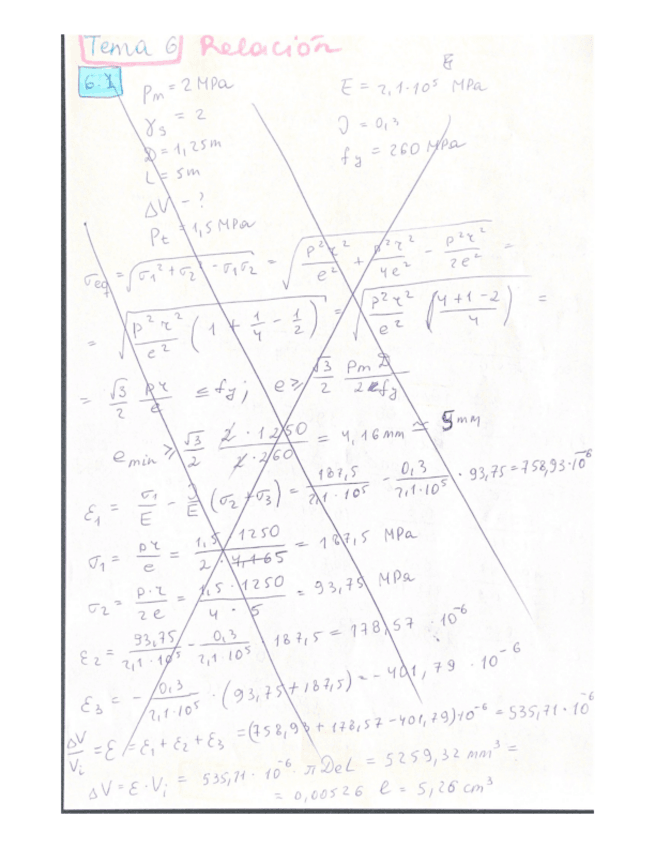 Tema 6 Relación
6.1 Pm = 2 MPa E = 2,1·10⁵ MPa
γs = 2 ν = 0,3
D = 1,25m fy = 260 MPa
L = 5m
ΔV - ?
Pt = 1,5 MPa
σeq = √(σ1² + σ2² - σ1σ2) = √(p²r²/e² + p²r²/4e² - p²r²/2e²) =
= √(p²r²/e² (1 + 1/4 - 1/2)) = √(p²r²/e² (4+1-2/4)) =
= √3/2 pr/e ≤ fy; e ≥ √3/2 Pm D/2fy
emin ≥ √3/2 2·1250/2·260 = 4,16mm ≃ 5mm
ε1 = σ1/E - ν/E (σ2 + σ3) = 187,5/2,1·10⁵ - 0,3/2,1·10⁵ · 93,75 = 758,93·10⁻⁶
σ1 = pr/e = 1,5·1250/2·4,165 = 187,5 MPa
σ2 = p·r/2e = 1,5·1250/4·5 = 93,75 MPa
ε2 = 93,75/2,1·10⁵ - 0,3/2,1·10⁵ · 187,5 = 178,57·10⁻⁶
ε3 = - 0,3/2,1·10⁵ · (93,75 + 187,5) = -401,79·10⁻⁶
ΔV/Vi = ε = ε1 + ε2 + ε3 = (758,93 + 178,57 - 401,79)·10⁻⁶ = 535,71·10⁻⁶
ΔV = ε·Vi = 535,71·10⁻⁶ · πDeL = 5259,32 mm³ =
= 0,00526 l = 5,26 cm³